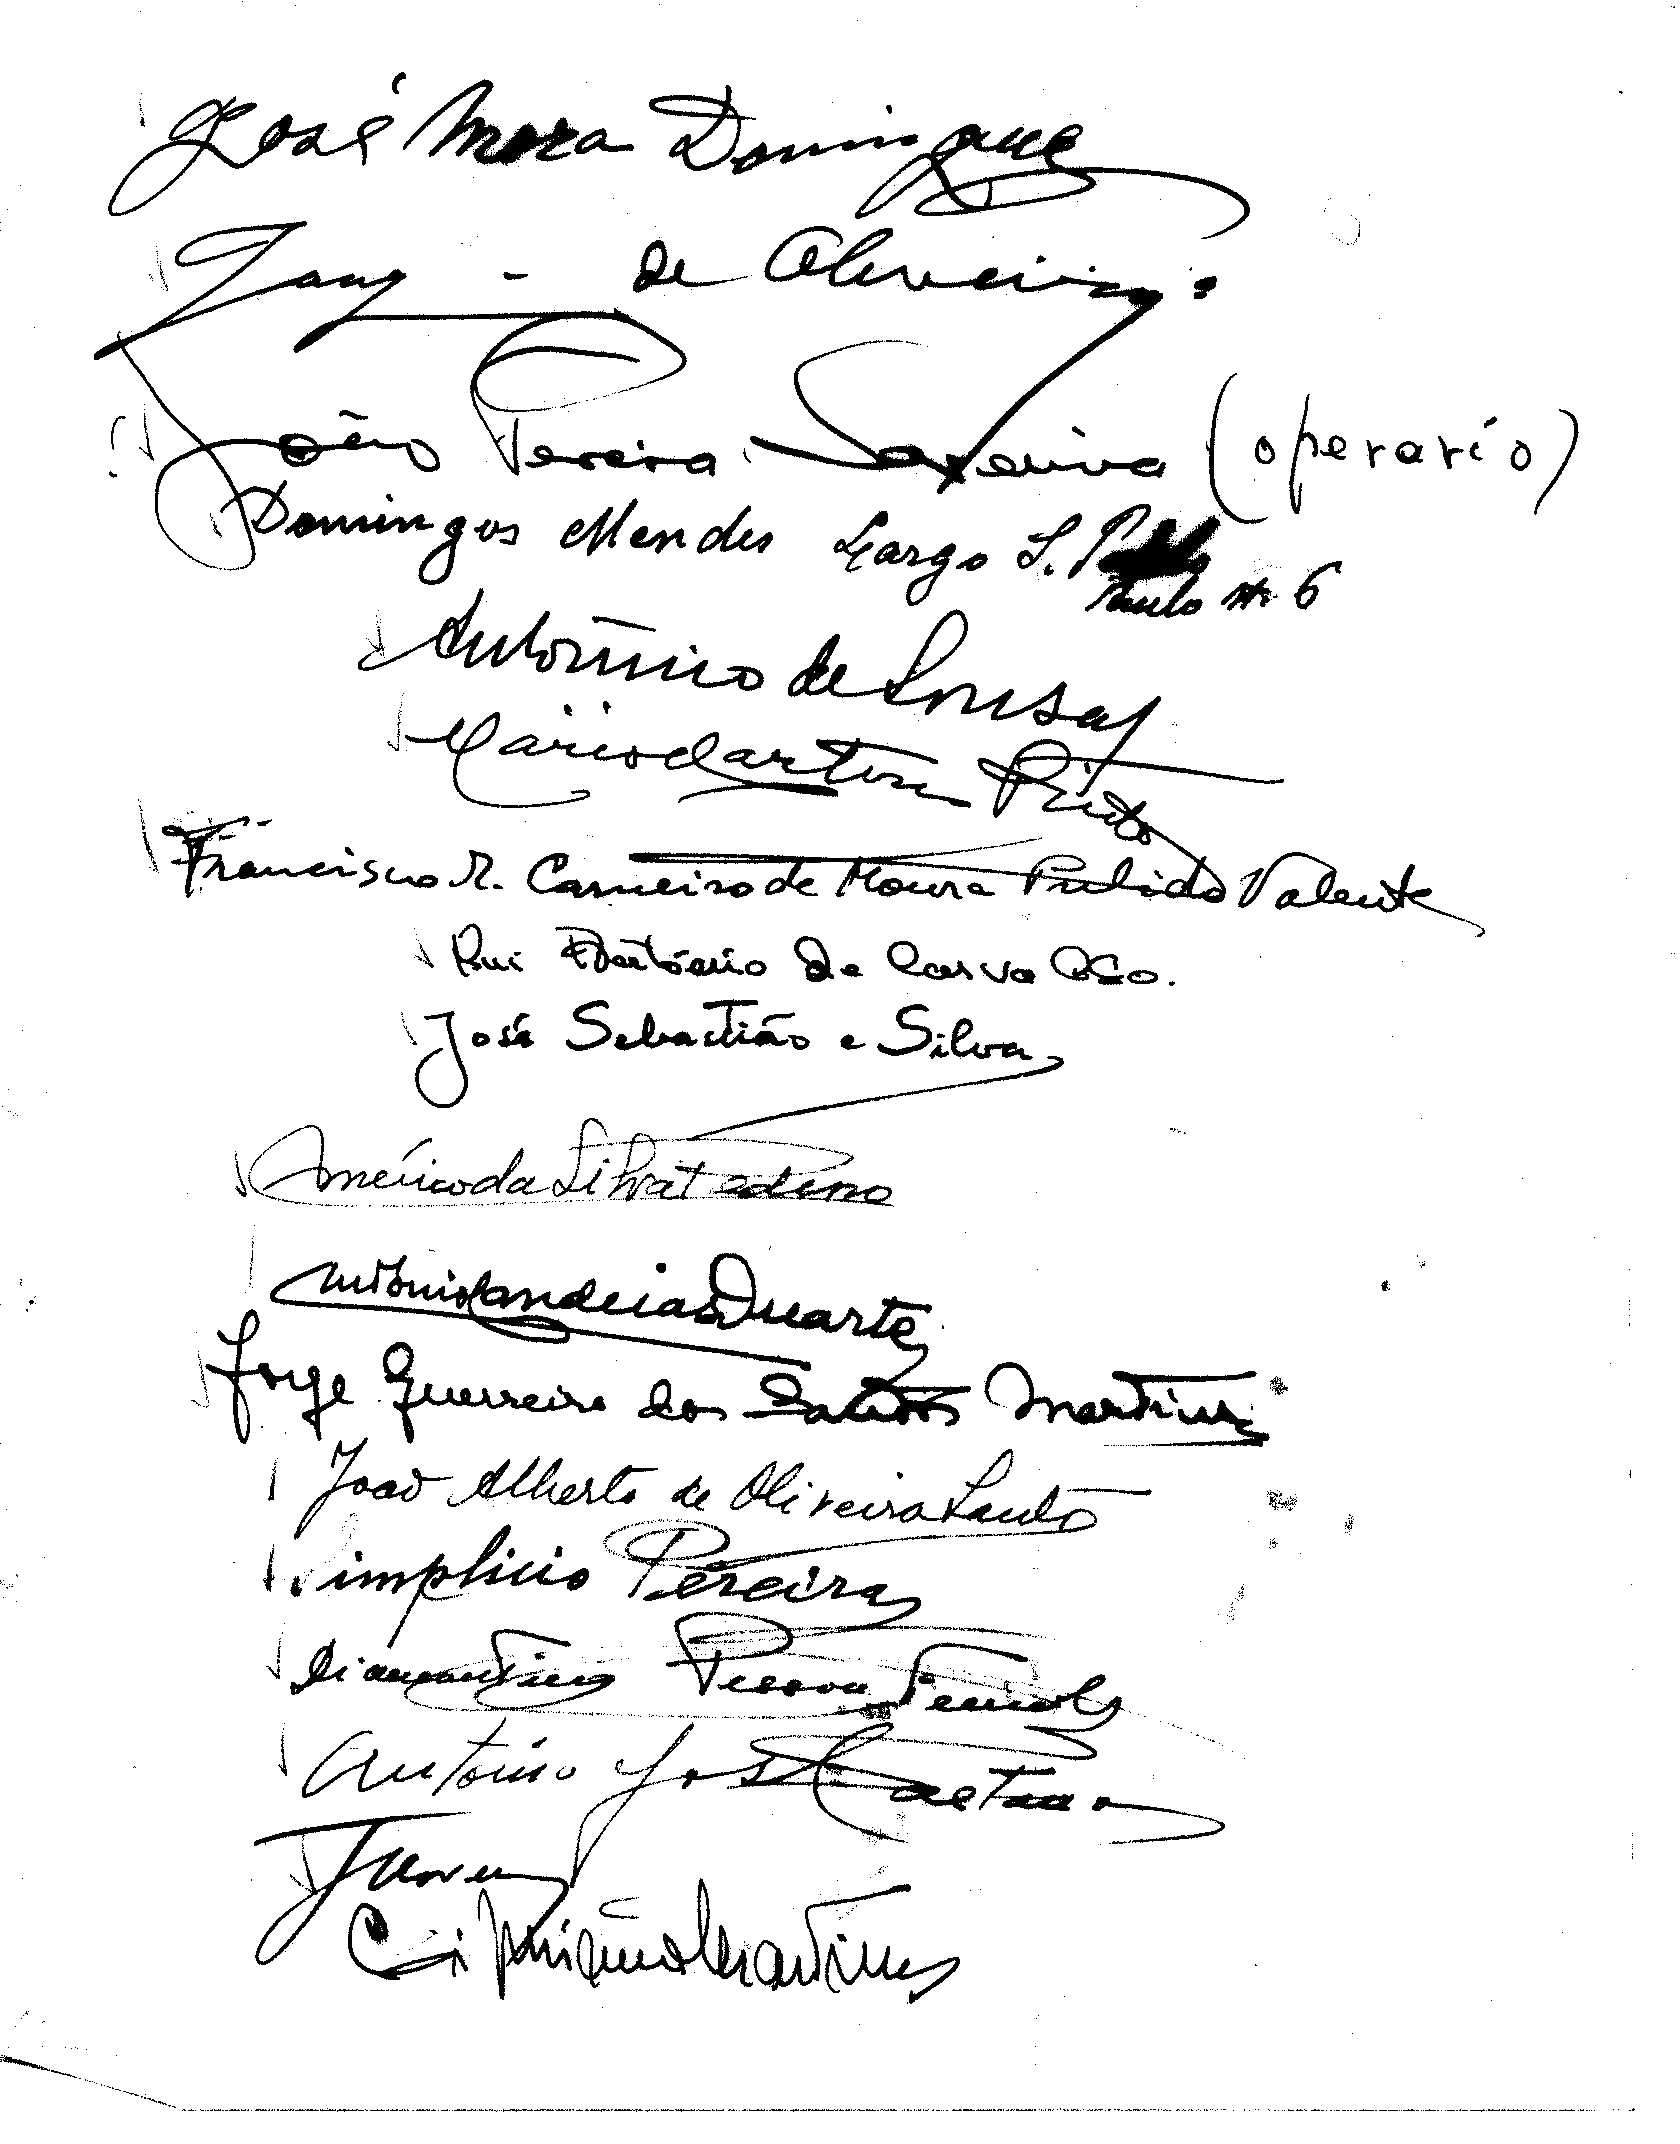 José Mora Domingues
de Oliveira
João Pereira Saraiva (operario)
Domingos Mendes Largo S.
Paulo nº 6
António de Sousa
Mário Martins Pinto
Francisco R. Carneiro de Moura Pulido Valente
Rui de Carvalho.
José Sebastião e Silva
Américo da Silva
António Candeias Duarte
Jorge Guerreiro dos Santos Martins
João Alberto de Oliveira Santos
Simplicio Pereira
Diamantino Pessoa
António José Caetano
Cipriano Martins